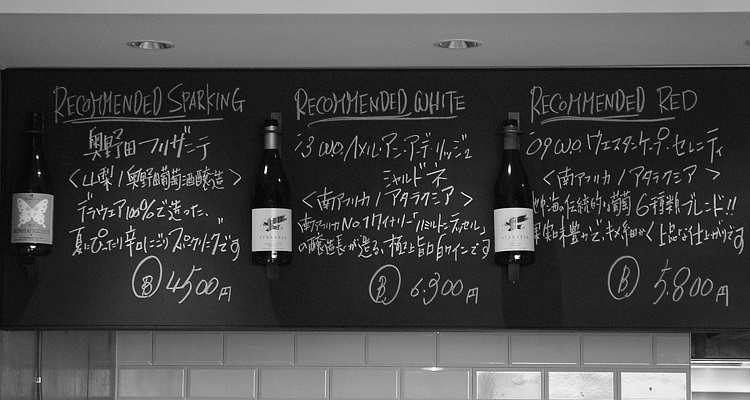 RECOMMENDED SPARKING
奥野田フリザンテ
<山梨/奥野田葡萄酒醸造>
デラウェア100%で造った、
夏にぴったり辛口にごりスパークリングです
Ⓑ 4500円
RECOMMENDED WHITE
'13 W.O.ヘメル・アン・アーデ・リッジ
シャルドネ
<南アフリカ/アタラクシア>
南アフリカNo.1ワイナリー「ハミルトンラッセル」
の醸造長が造る、極上旨口白ワインです
Ⓑ 6.300円
RECOMMENDED RED
'09 W.O.ウエスタンケープ・セレニティ
<南アフリカ/アタラクシア>
地中海の伝統的な葡萄6種類ブレンド!!
果実味豊かで、キメ細かく上品な仕上がりです
Ⓑ 5.800円
ATARAXIA